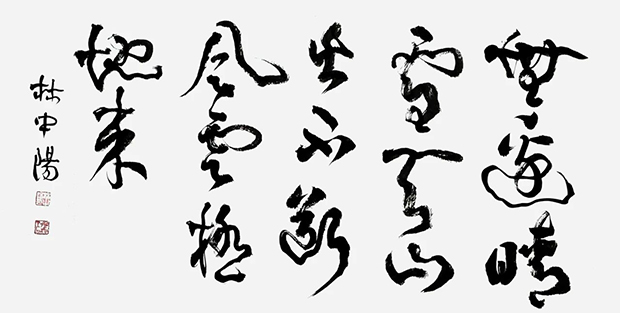 無邊晴
雪天山
出不斷
風雲極
地來
林中陽